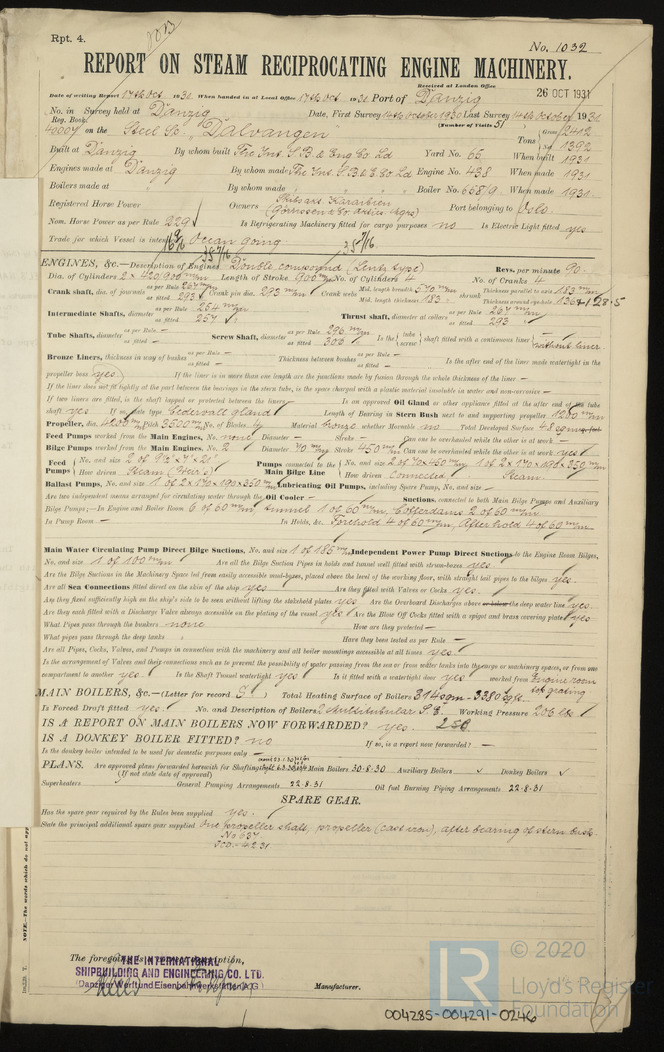 Rpt. 4.
No. 1032
REPORT ON STEAM RECIPROCATING ENGINE MACHINERY.
Received at London Office 26 OCT 1931
Date of writing Report 17th Oct 1931 When handed in at Local Office 17th Oct 1931 Port of Danzig
No. in Survey held at Danzig Date, First Survey Last Survey 1931
Reg. Book. (Number of Visits 51)
40004 on the Steel Sc. "Dalvangen" Tons Gross 2412 Net 1392
Built at Danzig By whom built The Int. S.B. & Eng Co Ld Yard No. 66 When built 1931
Engines made at Danzig By whom made The Int. S.B. & E Co Ld Engine No. 438 When made 1931
Boilers made at " By whom made " Boiler No. 668/9 When made 1931
Registered Horse Power Owners Port belonging to Oslo
Nom. Horse Power as per Rule 229 Is Refrigerating Machinery fitted for cargo purposes no Is Electric Light fitted yes
Trade for which Vessel is intended Ocean going
35 7/16
ENGINES, &c.—Description of Engines Double compound (Lentz type) Revs. per minute 90
Dia. of Cylinders 2 x 420/900 m/m Length of Stroke 900 m/m No. of Cylinders 4 No. of Cranks 4
Crank shaft, dia. of journals as per Rule as fitted 293 Crank pin dia. 293 m/m Crank webs Mid. length breadth 570 m/m Mid. length thickness 183 shrunk Thickness parallel to axis 183 m/m Thickness around eye-hole
Intermediate Shafts, diameter as per Rule 254 m/m as fitted 257 Thrust shaft, diameter at collars as per Rule 267 m/m as fitted 293
Tube Shafts, diameter as per Rule — as fitted — Screw Shaft, diameter as per Rule 296 m/m as fitted 303 Is the tube screw shaft fitted with a continuous liner without liner
Bronze Liners, thickness in way of bushes as per Rule — as fitted — Thickness between bushes as per Rule — as fitted — Is the after end of the liner made watertight in the
propeller boss yes If the liner is in more than one length are the junctions made by fusion through the whole thickness of the liner —
If the liner does not fit tightly at the part between the bearings in the stern tube, is the space charged with a plastic material insoluble in water and non-corrosive —
If two liners are fitted, is the shaft lapped or protected between the liners Is an approved Oil Gland or other appliance fitted at the after end of the tube
shaft yes If so, state type Cedervall gland Length of Bearing in Stern Bush next to and supporting propeller 1250 m/m
Propeller, dia. 4200 m/m Pitch 3500 m/m No. of Blades 4 Material bronze whether Moveable no Total Developed Surface 4.8 sqm
Feed Pumps worked from the Main Engines, No. none Diameter — Stroke — Can one be overhauled while the other is at work —
Bilge Pumps worked from the Main Engines, No. 2 Diameter 70 m/m Stroke 450 m/m Can one be overhauled while the other is at work yes
Feed Pumps No. and size How driven Steam (Weir's) Pumps connected to the Main Bilge Line No. and size 2 of 70x450 m/m 1 of 2x170x190x350 m/m How driven Connected Steam
Ballast Pumps, No. and size 1 of 2x170x190x350 m/m Lubricating Oil Pumps, including Spare Pump, No. and size —
Are two independent means arranged for circulating water through the Oil Cooler — Suctions, connected to both Main Bilge Pumps and Auxiliary
Bilge Pumps;—In Engine and Boiler Room 6 of 60 m/m, tunnel 1 of 60 m/m, Cofferdams 2 of 60 m/m
In Pump Room — In Holds, &c. Forehold 4 of 60 m/m, Afterhold 4 of 60 m/m
Main Water Circulating Pump Direct Bilge Suctions, No. and size 1 of 185 m/m Independent Power Pump Direct Suctions to the Engine Room Bilges,
No. and size 1 of 100 m/m Are all the Bilge Suction Pipes in holds and tunnel well fitted with strum-boxes yes
Are the Bilge Suctions in the Machinery Space led from easily accessible mud-boxes, placed above the level of the working floor, with straight tail pipes to the bilges yes
Are all Sea Connections fitted direct on the skin of the ship yes Are they fitted with Valves or Cocks yes
Are they fixed sufficiently high on the ship's side to be seen without lifting the stokehold plates yes Are the Overboard Discharges above or below the deep water line yes
Are they each fitted with a Discharge Valve always accessible on the plating of the vessel yes Are the Blow Off Cocks fitted with a spigot and brass covering plate yes
What Pipes pass through the bunkers none How are they protected —
What pipes pass through the deep tanks " Have they been tested as per Rule —
Are all Pipes, Cocks, Valves, and Pumps in connection with the machinery and all boiler mountings accessible at all times yes
Is the arrangement of Valves and their connections such as to prevent the possibility of water passing from the sea or from water tanks into the cargo or machinery spaces, or from one
compartment to another yes Is the Shaft Tunnel watertight yes Is it fitted with a watertight door yes worked from Engine room top grating
MAIN BOILERS, &c.—(Letter for record S) Total Heating Surface of Boilers 314 sqm - 3380 sq ft.
Is Forced Draft fitted yes No. and Description of Boilers 2 Multitubular S.E. Working Pressure 206 lbs
IS A REPORT ON MAIN BOILERS NOW FORWARDED? yes
IS A DONKEY BOILER FITTED? no If so, is a report now forwarded? —
Is the donkey boiler intended to be used for domestic purposes only —
PLANS. Are approved plans forwarded herewith for Shafting Main Boilers 30-8-30 Auxiliary Boilers Donkey Boilers
(If not state date of approval)
Superheaters General Pumping Arrangements 22-8-31 Oil fuel Burning Piping Arrangements 22-8-31
SPARE GEAR.
Has the spare gear required by the Rules been supplied yes.
State the principal additional spare gear supplied One propeller shaft, propeller (cast iron), after bearing of stern bush
No 637
The foregoing is a correct description,
THE INTERNATIONAL
SHIPBUILDING AND ENGINEERING CO. LTD.
(Danziger Werft und Eisenbahnwerkstätten A.G.)
Manufacturer.
NOTE.—The words which do not app
LR © 2020
Lloyd's Register
Foundation
004285-004291-0246